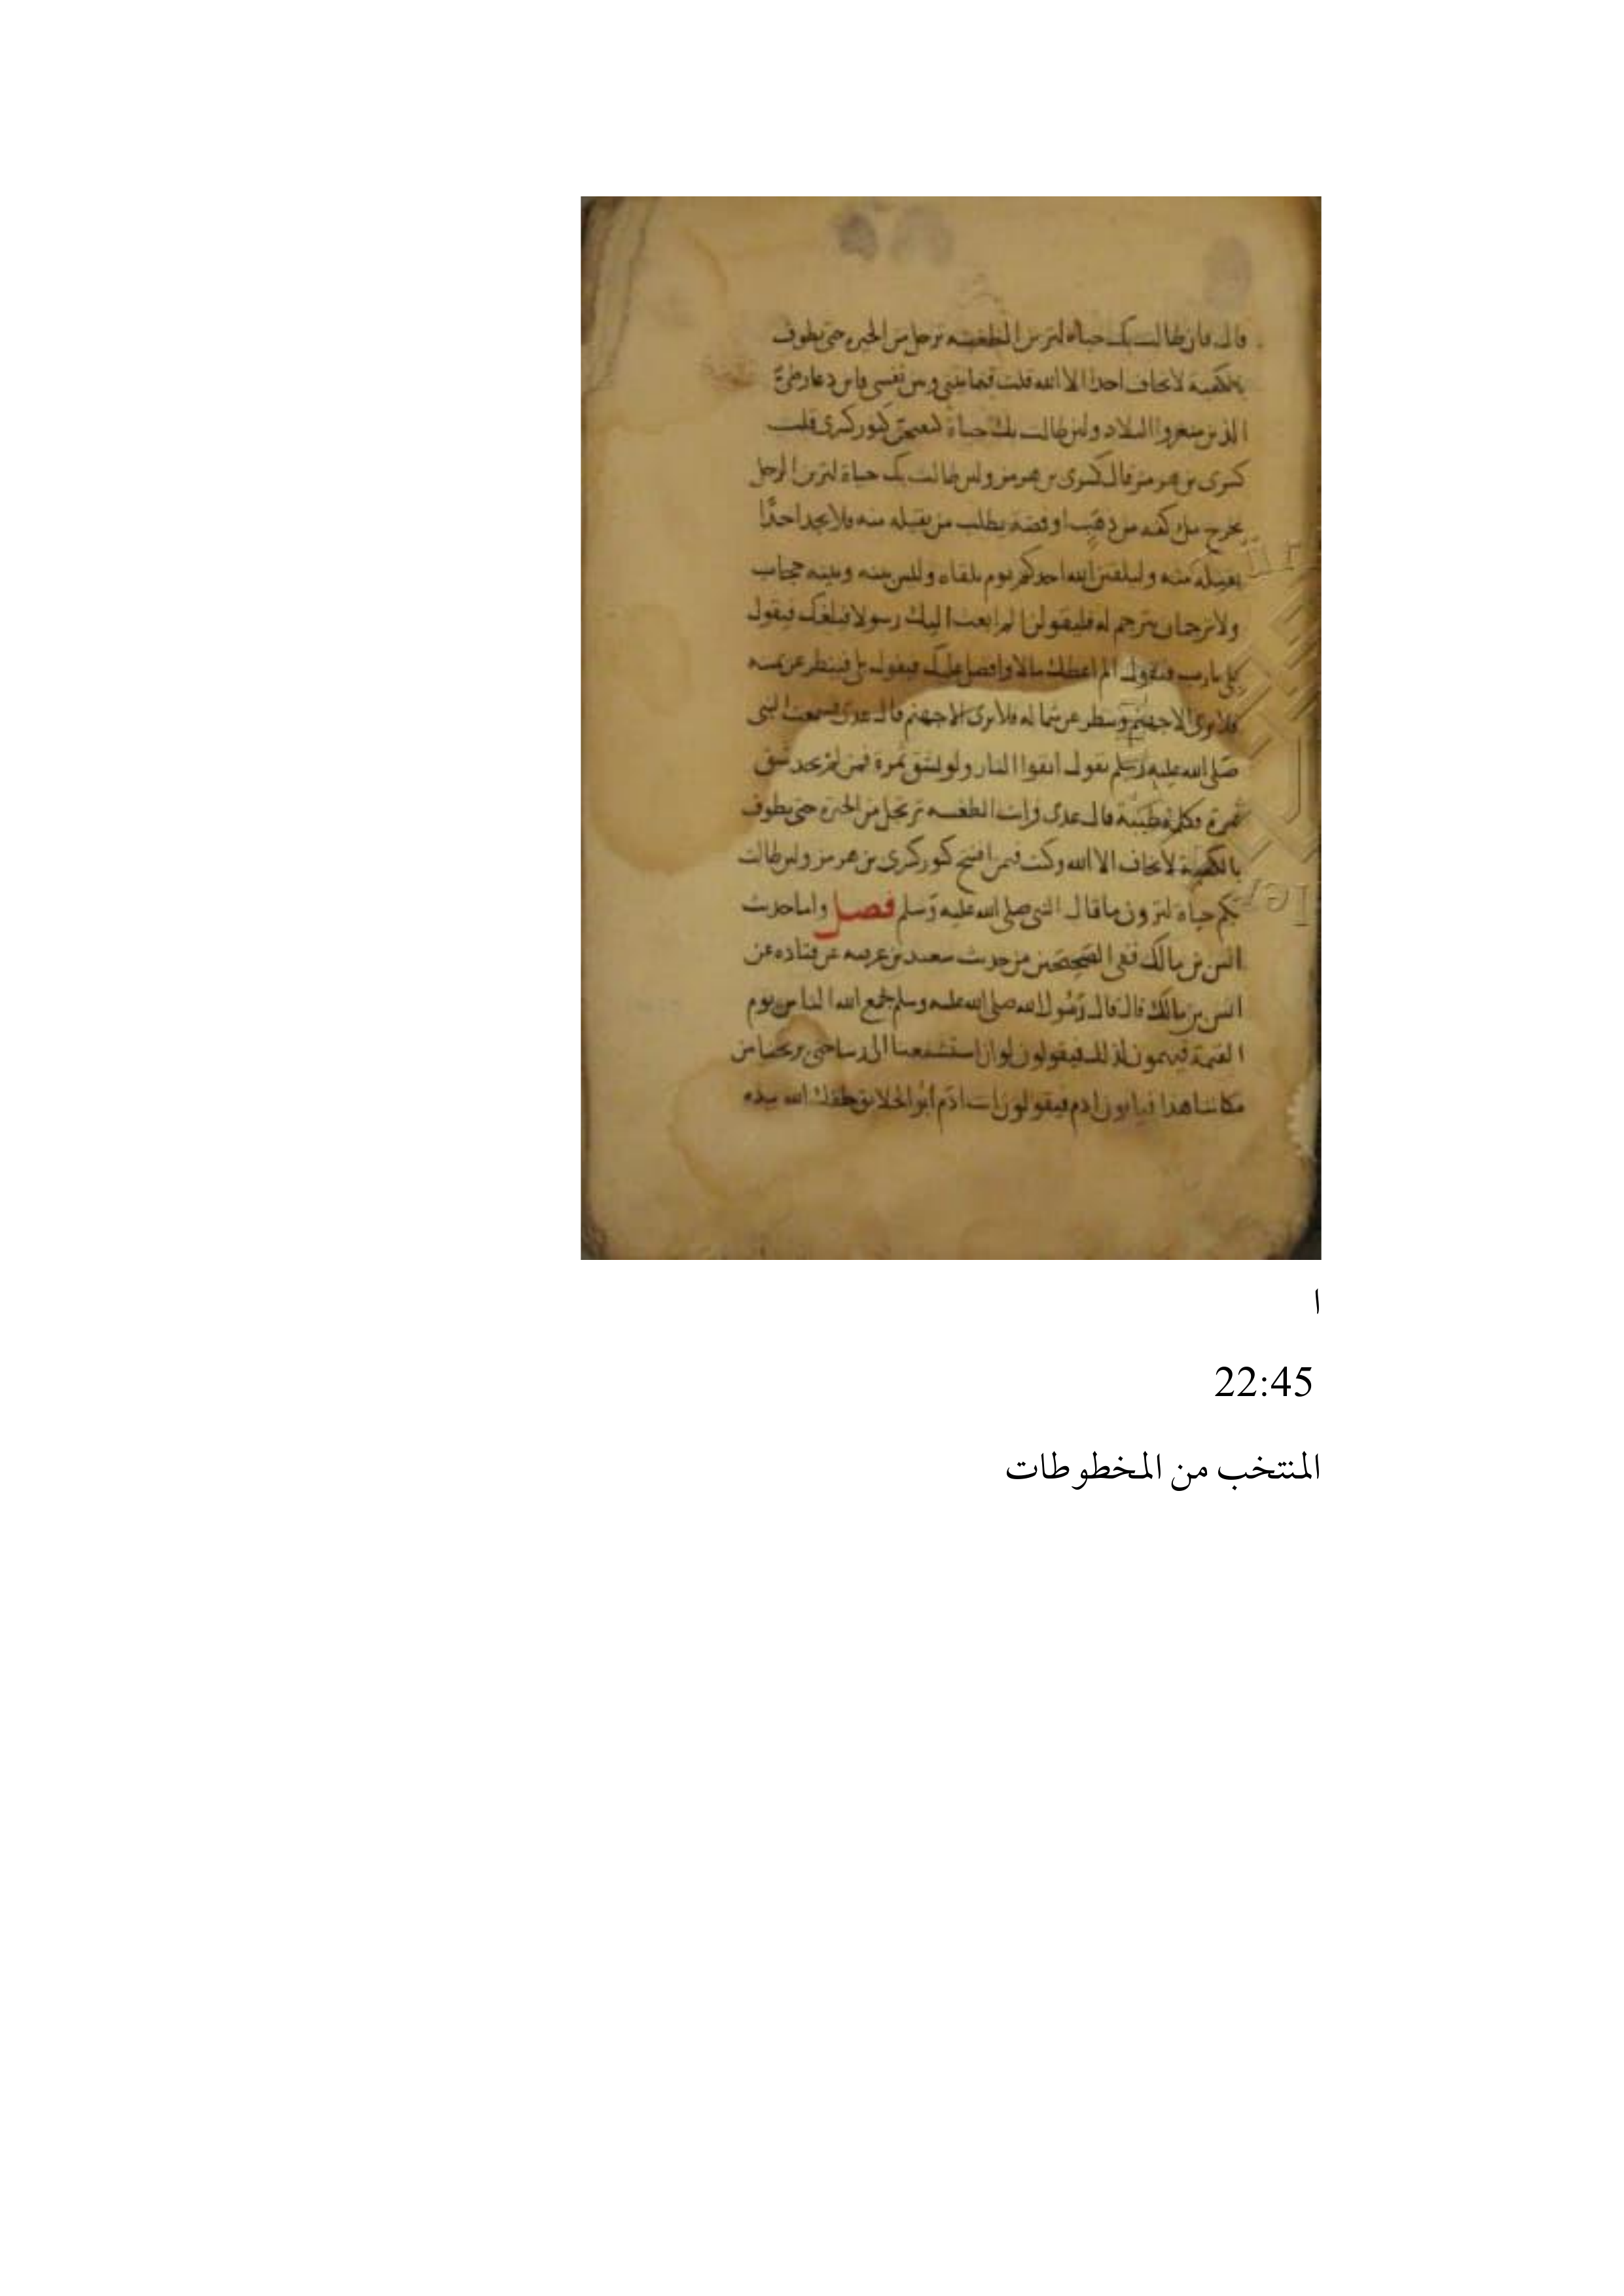 قال فان طالت بك حياة لترين الظعينة ترحل من الحيرة حتى تطوف
بالكعبة لا تخاف احدا الا الله قلت فيما بيني وبين نفسي فاين دعار طيئ
الذين سعروا البلاد ولئن طالت بك حياة لتفتحن كنوز كسرى قلت
كسرى بن هرمز قال كسرى بن هرمز ولئن طالت بك حياة لترين الرجل
يخرج ملء كفه من ذهب او فضة يطلب من يقبله منه فلا يجد احدًا
يقبله منه وليلقين الله احدكم يوم يلقاه وليس بينه وبينه حجاب
ولا ترجمان يترجم له فليقولن الم ابعث اليك رسولا فيبلغك فيقول
بلى يا رب فيقول الم اعطك مالا وافضل عليك فيقول بلى فينظر عن يمينه
فلا يرى الا جهنم وينظر عن شماله فلا يرى الا جهنم قال عدي سمعت النبي
صلى الله عليه وسلم يقول اتقوا النار ولو بشق تمرة فمن لم يجد شق
تمرة فكلمة طيبة قال عدي فرايت الظعينة ترتحل من الحيرة حتى تطوف
بالكعبة لا تخاف الا الله وكنت فيمن افتتح كنوز كسرى بن هرمز ولئن طالت
بكم حياة لترون ما قال النبي صلى الله عليه وسلم فصل واما حديث
انس بن مالك ففي الصحيحين من حديث سعيد بن عن قتادة عن
انس بن مالك قال قال رسول الله صلى الله عليه وسلم يجمع الله الناس يوم
القيمة فيهمون لذلك فيقولون لو استشفعنا الى ربنا حتى يريحنا من
مكاننا هذا فياتون ادم فيقولون انت ادم ابو الخلايق خلقك الله بيده
ا
22:45
المنتخب من المخطوطات